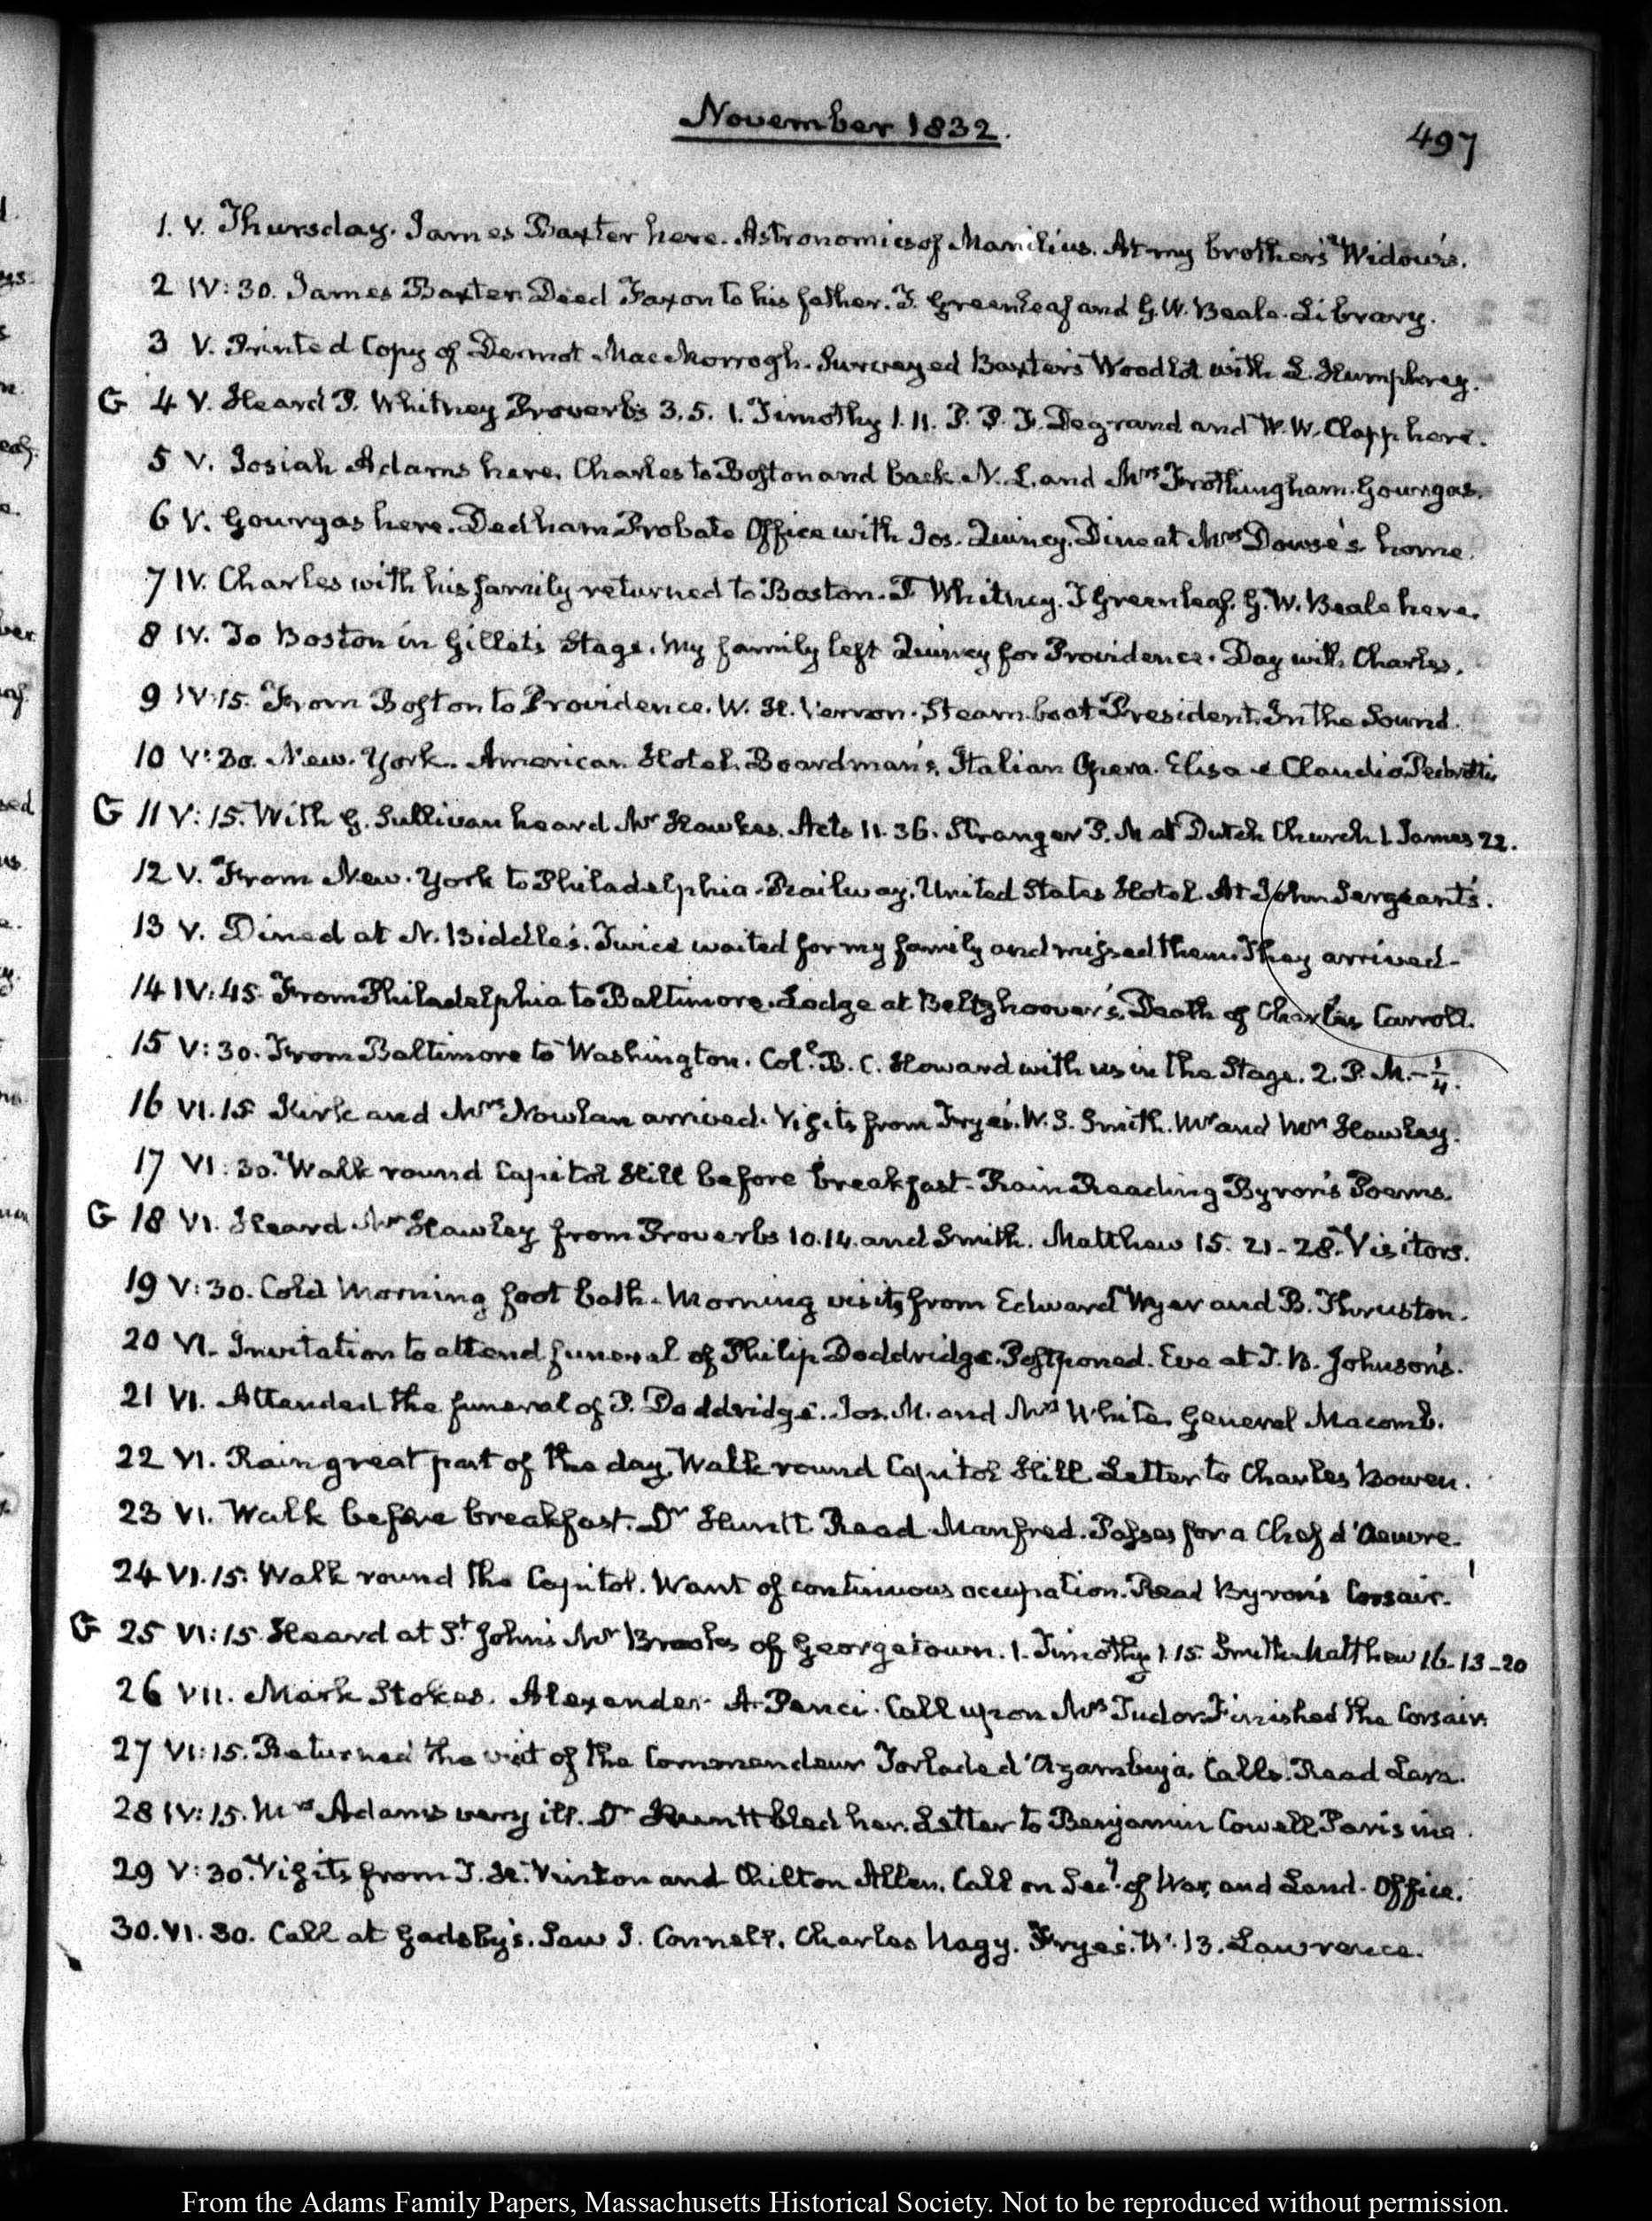 November 1832.
497
1. V. Thursday. James Baxter here. Astronomics of Manilius. At my brother's Widow's.
2 IV:30. James Baxter. Deed Faxon to his father. T. Greenleaf and G. W. Beale. Library.
3 V. Printed Copy of Dermot MacMorrogh. Surveyed Baxter's Woodlot with L. Humphrey.
G 4 V. Heard P. Whitney Proverbs 3.5. 1. Timothy 1.11. P. P. F. Degrand and W. W. Clapp here.
5 V. Josiah Adams here. Charles to Boston and back. N. L. and Mrs Frothingham. Gourgas.
6 V. Gourgas here. Dedham Probate Office with Jos. Quincy. Dine at Mrs Dowse's home.
7 IV. Charles with his family returned to Boston. T Whitney. T Greenleaf. G. W. Beale here.
8 IV. To Boston in Gillet's Stage. My family left Quincy for Providence. Day with Charles.
9 IV:15. From Boston to Providence. W. H. Vernon. Steam-boat President. In the Sound.
10 V:30. New-York. American Hotel. Boardman's. Italian Opera. Elisa e Claudio
G 11 V:15. With G. Sullivan heard Mr Hawkes. Acts 11.36. Stranger P. M at Dutch Church 1 James 22.
12 V. From New-York to Philadelphia. Railway. United States Hotel. At John Sergeant's.
13 V. Dined at N. Biddle's. Twice waited for my family and missed them. They arrived-
14 IV:45. From Philadelphia to Baltimore. Lodge at Beltzhoover's. Death of Charles Carroll.
15 V:30. From Baltimore to Washington. Coll. B. C. Howard with us in the Stage. 2. P. M. - 1/4.
16 VI.15 Kirk and Mrs Nowlan arrived. Visits from Frye's. W. S. Smith. Mr and Mrs Hawley.
17 VI:30. Walk round Capitol Hill before breakfast - Rain Reading Byron's Poems.
G 18 VI. Heard Mr Hawley from Proverbs 10.14. and Smith. Matthew 15. 21-28. Visitors.
19 V:30. Cold Morning foot bath. Morning visits from Edward Wyer and B. Thruston.
20 VI. Invitation to attend funeral of Philip Doddridge. Postponed. Eve at J. B. Johnson's.
21 VI. Attended the funeral of P. Doddridge. Jos. M. and Mrs White. General Macomb.
22 VI. Rain great part of the day. Walk round Capitol Hill. Letter to Charles Bowen.
23 VI. Walk before breakfast. Dr Huntt. Read Manfred. Passes for a Chef d'Oeuvre.
24 VI.15. Walk round the Capitol. Want of continuous occupation. Read Byron's Corsair.
G 25 VI:15. Heard at St John's Mr Brooke of Georgetown. 1. Timothy 1.15. Smith Matthew 16-13-20
26 VII. Mark Stokes. Alexander A. Penci. Call upon Mrs Tudor. Finished the Corsair.
27 VI:15. Returned the visit of the Commandeur Torlade d'Azambuja. Calls. Read Lara.
28 IV:15. Mrs Adams very ill. Dr Huntt bled her. Letter to Benjamin Cowell Parisina.
29 V:30. Visits from J. H. Vinton and Chilton Allen. Call on Secy. of War, and Land-Office.
30. VI. 30. Call at Gadsby's. Saw J. Connell. Charles Nagy. Frye's. W. B. Lawrence.
From the Adams Family Papers, Massachusetts Historical Society. Not to be reproduced without permission.